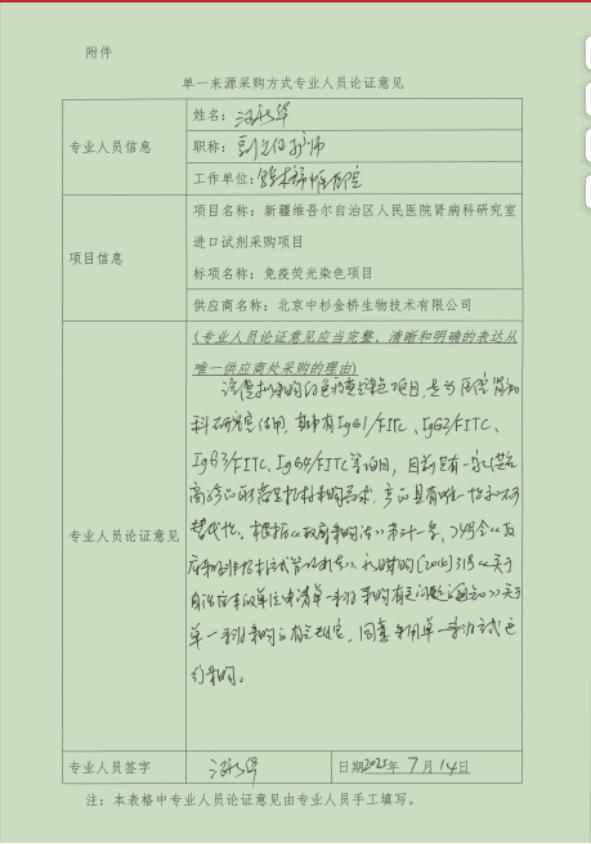 附件
单一来源采购方式专业人员论证意见
专业人员信息
姓名:
职称: 副主任护师
工作单位:
项目信息
项目名称: 新疆维吾尔自治区人民医院肾病科研究室
进口试剂采购项目
标项名称: 免疫荧光染色项目
供应商名称: 北京中杉金桥生物技术有限公司
专业人员论证意见
(专业人员论证意见应当完整、清晰和明确的表达从
唯一供应商处采购的理由)
染色项目,是为医院肾病
科研究室使用,其中有IgG1/FITC、IgG2/FITC、
IgG3/FITC、IgG4/FITC等项目,目前只有一家供应
商产品能满足采购需求,产品具有唯一性和不可
替代性。根据《政府采购法》第三十一条、74号令《政
府采购非招标方式管理办法》、《关于
单位申请单一来源采购有关问题通知》关于
单一来源采购的有关规定,同意采用单一来源方式进
行采购。
专业人员签字
日期2025年 7月 14日
注: 本表格中专业人员论证意见由专业人员手工填写。